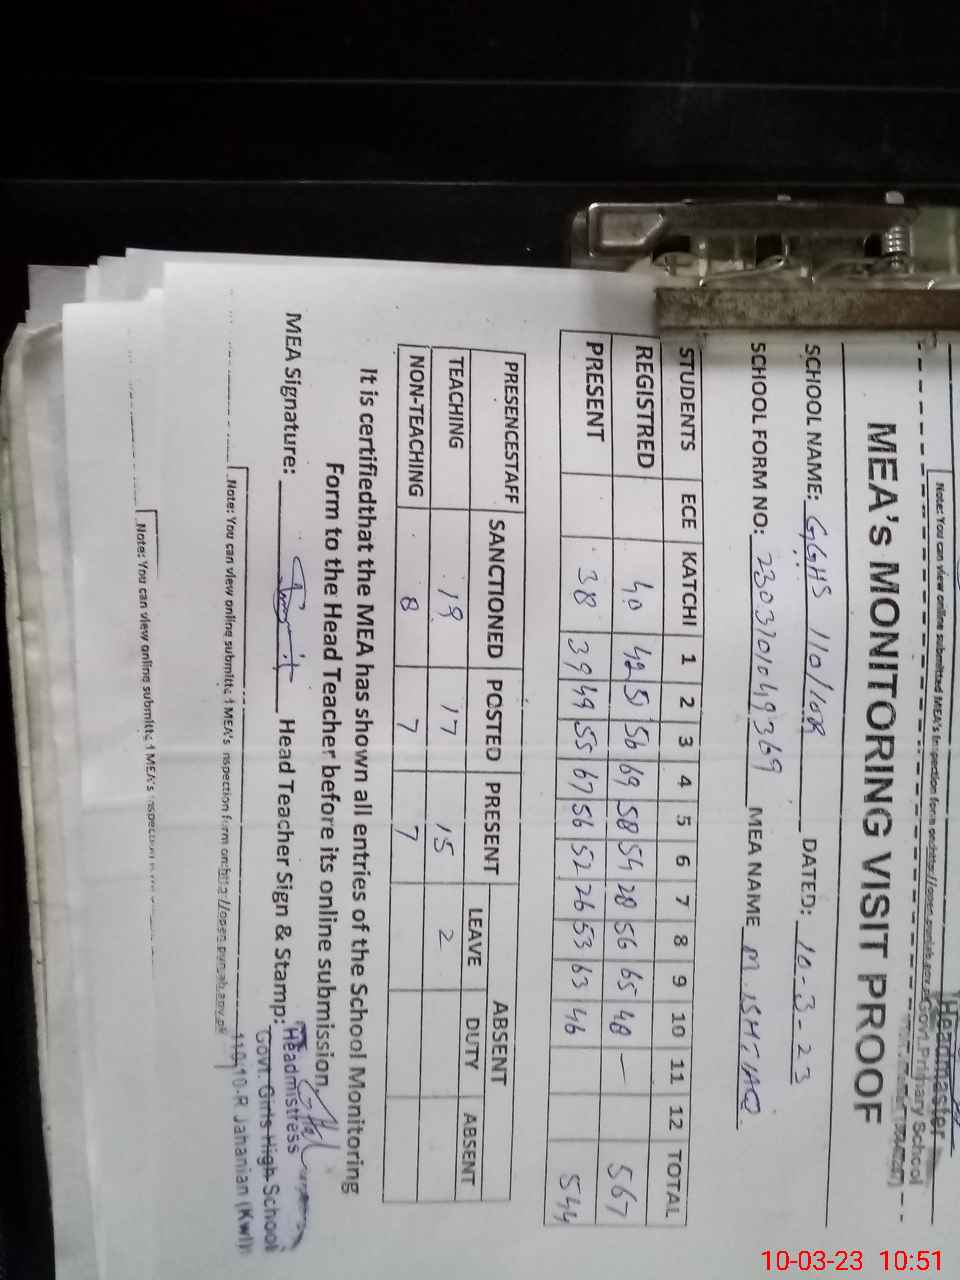 Headmaster
Govt. Primary School
Note: You can view online submitted MEA's Inspection form on:http://open.punjab.gov.pk
MEA'S MONITORING VISIT PROOF
SCHOOL NAME: GGHS 110/10R DATED: 10-3-23
SCHOOL FORM NO: 2303101049369 MEA NAME M. ISHTIAQ
STUDENTS ECE KATCHI 1 2 3 4 5 6 7 8 9 10 11 12 TOTAL
REGISTRED 40 42 50 56 69 58 54 28 56 65 48 — 567
PRESENT 38 39 49 55 67 56 52 26 53 63 46 544
PRESENCESTAFF SANCTIONED POSTED PRESENT ABSENT
LEAVE DUTY ABSENT
TEACHING 19 17 15 2
NON-TEACHING 8 7 7
It is certifiedthat the MEA has shown all entries of the School Monitoring
Form to the Head Teacher before its online submission.
MEA Signature: Head Teacher Sign & Stamp:
Headmistress
Govt. Girls High School
110-10-R Jahanian (Kwl)
Note: You can view online submitted MEA's Inspection form on:http://open.punjab.gov.pk
Note: You can view online submitted MEA's Inspection
10-03-23 10:51